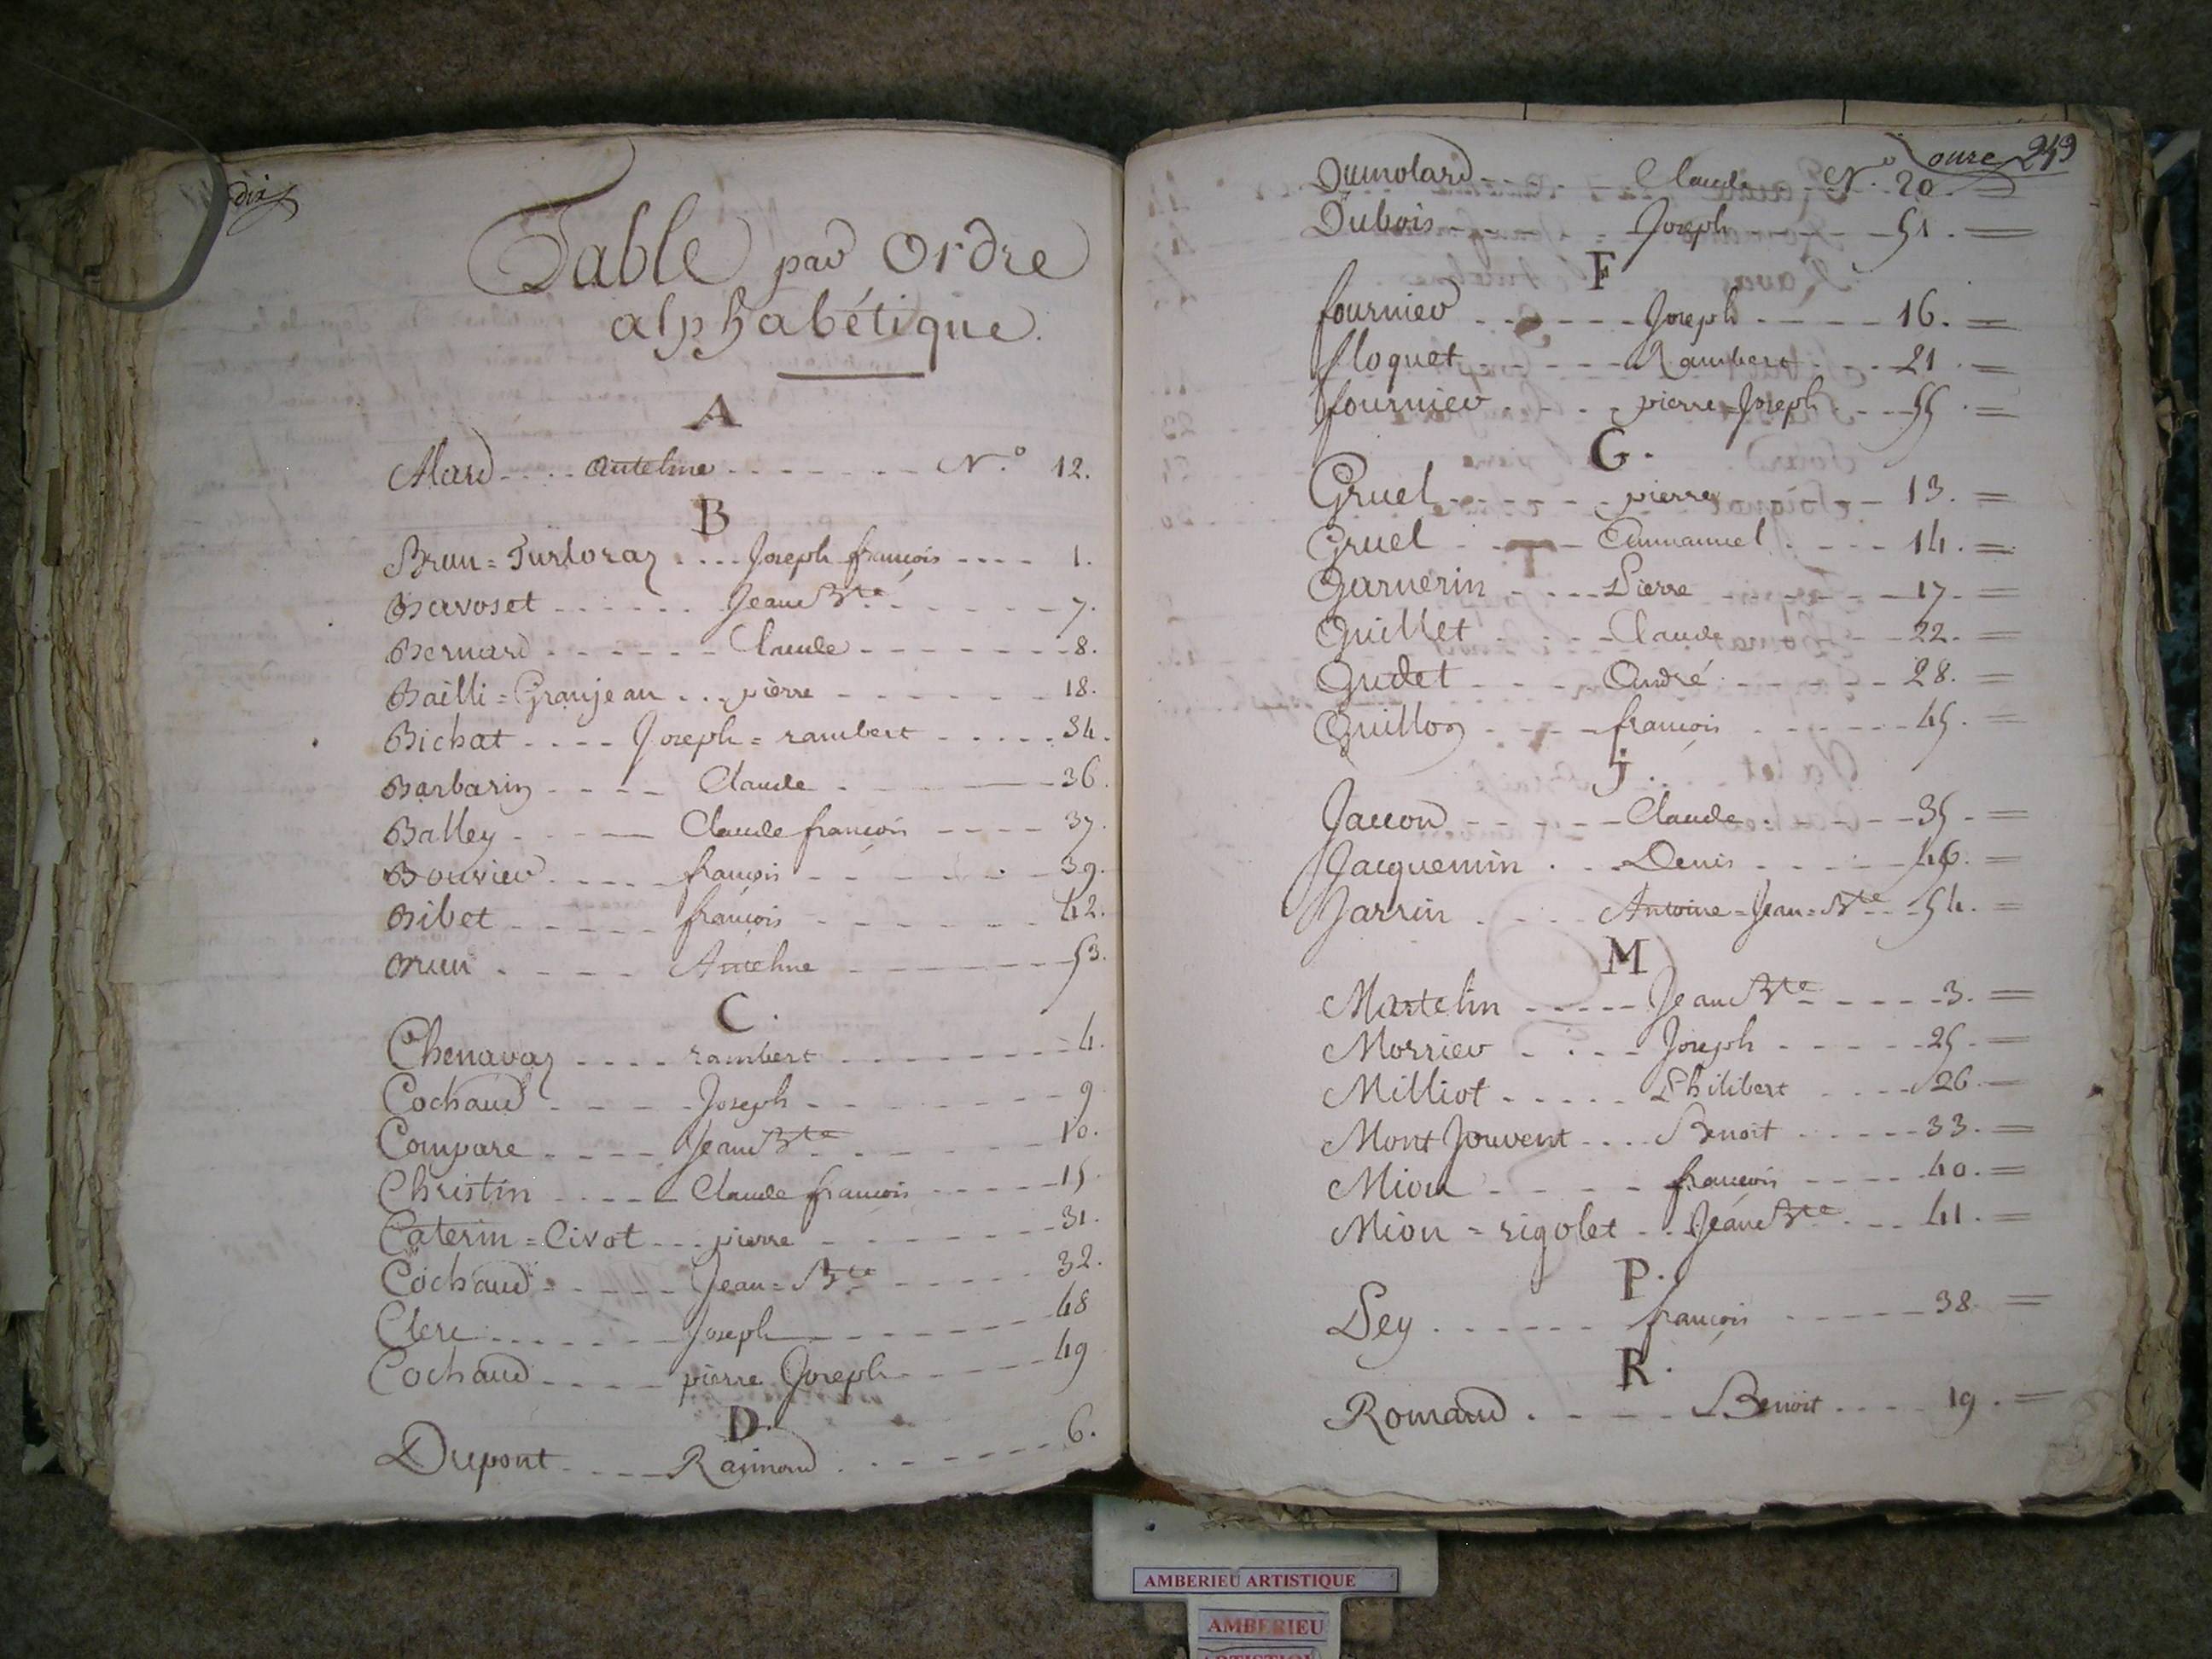 dix
Table par Ordre
alphabétique.
A
Alard .... antelme ....... N.° 12.
B
Brun = Turloraz .... Joseph françois .... 1.
Bavoset ...... Jean Bte ...... 7.
Bernard ...... Claude ....... 8.
Bailli = Granjean ... pierre ...... 18.
Bichat .... Joseph = rambert ..... 34.
Barbarin .... Claude .... 36.
Balley .... Claude françois .... 37.
Bouvier .... françois ..... 39.
Bibet ..... françois ..... 42.
Brun .... Antelme ..... 53.
C.
Chenavaz .... rambert ....... 4.
Cochaud .... Joseph ....... 9
Compare .... Jean Bte ...... 10.
Christin .... Claude françois .... 15
Caterin = Civot ... pierre ...... 31.
Cochaud = .... Jean = Bte ..... 32.
Clerc ...... Joseph ...... 48
Cochaud .... pierre Joseph ..... 49
D.
Dupont .... Raimond ...... 6.
onze 249
Dumolard .... Claude .. N.° 20. =
Dubois .... Joseph .... 51. =
F
fournier ...... Joseph ..... 16. =
floquet ..... Rambert .... 21. =
fournier .... pierre = Joseph ... 55. =
G.
Gruel ...... pierre ..... 13. =
Gruel .... Emmanuel .... 14. =
Garnerin ..... Pierre ..... 17. =
Guillet .... Claude .... 22. =
Gudet .... André ..... 28. =
Guillon .... françois ..... 45. =
J.
Jaccod ...... Claude ..... 35. =
Jacquemin ... Denis ..... 46. =
Jarrin .... Antoine = Jean = Bte .. 54. =
M
Martelin ..... Jean Bte ..... 3. =
Morrier .... Joseph ..... 25. =
Milliot ..... Philibert .... 26. =
Mont Jouvent .... Benoit ..... 33. =
Mion .... françois .... 40. =
Mion = rigolet .. Jean Bte ... 41. =
P.
Pey ...... françois ..... 38. =
R.
Romand ..... Benoit .... 19. =
AMBERIEU ARTISTIQUE
AMBERIEU
ARTISTIQUE